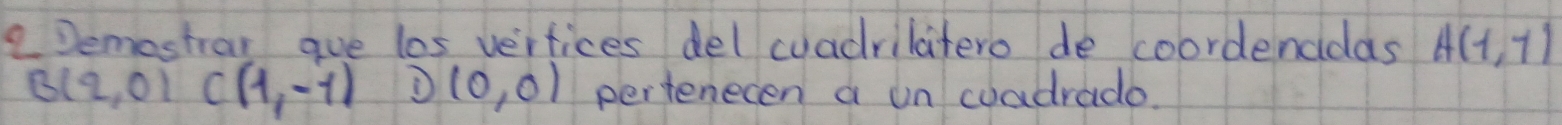 2 Demostrar que los vértices del cuadrilátero de coordenadas A(1,1)
B(2,0) C(1,-1) D(0,0) pertenecen a un cuadrado.